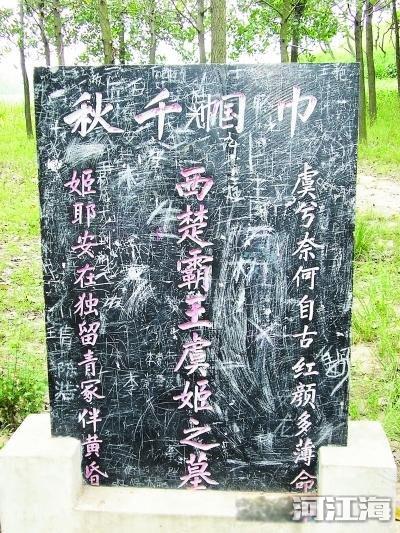 巾帼千秋
虞兮奈何自古红颜多薄命
西楚霸王虞姬之墓
姬耶安在独留青冢伴黄昏
陈浩
河江海